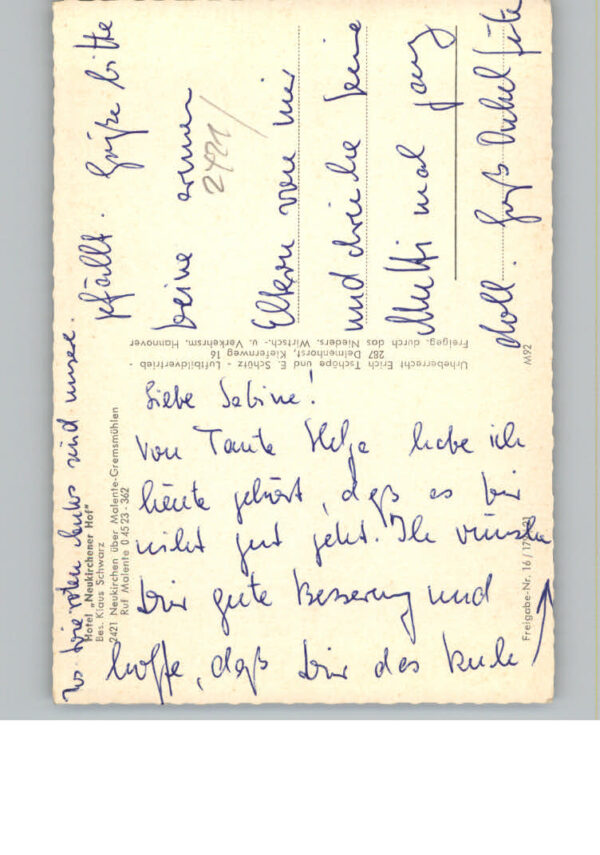 Hotel „Neukirchener Hof"
Bes. Klaus Schwarz
2421 Neukirchen über Malente-Gremsmühlen
Ruf Malente 0 45 23 - 362
Liebe Sabine!
Von Tante Helga habe ich
heute gehört, daß es Dir
nicht gut geht. Ich wünsche
Dir gute Besserung und
hoffe, daß Dir das
gefällt. Grüße bitte
Deine armen
Eltern von mir
und drücke Deine
Mutti mal ganz
doll. Gruß Onkel
PS. Die roten Autos sind unsere.
2421/
Urheberrecht Erich Tschöpe und E. Schütz - Luftbildvertrieb -
287 Delmenhorst, Kiefernweg 16
Freigeg. durch das Nieders. Wirtsch.- u. Verkehrsm. Hannover
M92
Freigabe-Nr. 16/